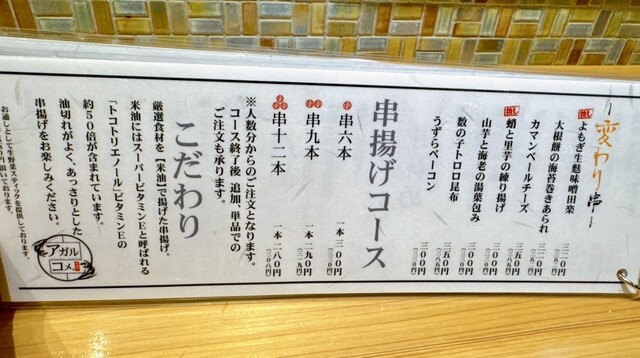 変わり串
推し よもぎ生麩味噌田楽 三二〇円
大根餅の海苔巻きあられ 三二〇円
カマンベールチーズ 三五〇円
推し 蛸と里芋の練り揚げ 三五〇円
山芋と海老の湯葉包み 三五〇円
数の子トロロ昆布 三〇〇円
うずらベーコン 三〇〇円
串揚げコース
串六本 一本 三〇〇円
串九本 一本 二九〇円
串十二本 一本 二八〇円
※人数分からのご注文となります。
コース終了後 追加、単品での
ご注文も承ります。
こだわり
厳選食材を【米油】で揚げた串揚げ。
米油にはスーパービタミンEと呼ばれる
「トコトリエノール」ビタミンEの
約50倍が含まれています。
油切れがよく、あっさりとした
串揚げをお楽しみください。
お通しとして生野菜スティックを提供しております。
アガル
コメ